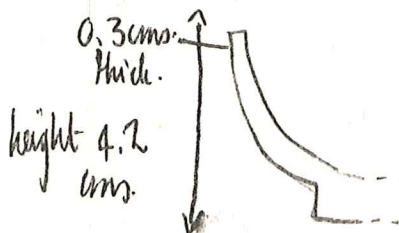 0.3 cms.
thick.
height 4.2
cms.